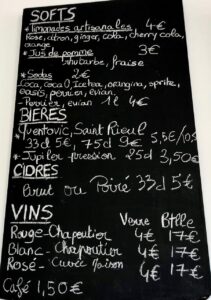 SOFTS
* limonades artisanales 4€
Rose, citron, ginger, cola, cherry cola,
orange
* Jus de pomme 3€
rhubarbe, fraise
* Sodas 2€
Coca, coca 0, Icetea, orangina, sprite,
oasis, perrier, évian.
- Perrier, evian 1l 4€
BIERES
* Quentovic, Saint Rieul
33cl 5€, 75cl 9€ 5,5€/10€
* Jupiler pression 25cl 3,50€
CIDRES
brut ou Poiré 33cl 5€
VINS
Verre Btlle
Rouge - Chapoutier 4€ 17€
Blanc - Chapoutier 4€ 17€
Rosé - Cuvée Maison 4€ 17€
Café 1,50€